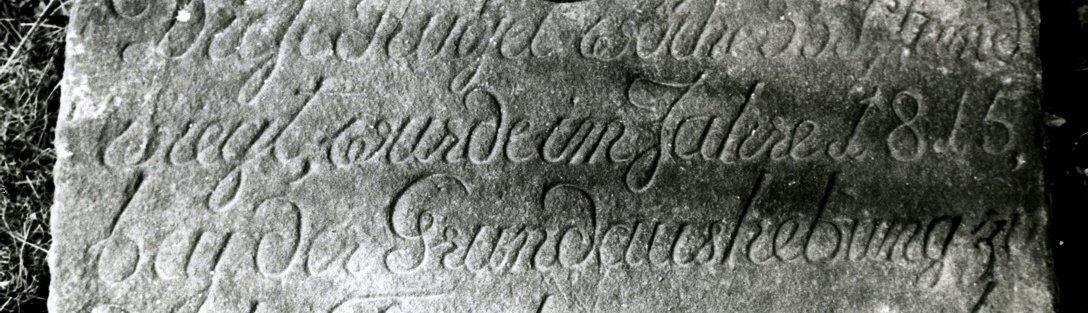 Diese Kugel welche
wegt, wurde im Jahre 1815,
bey der Grundaushebung zu